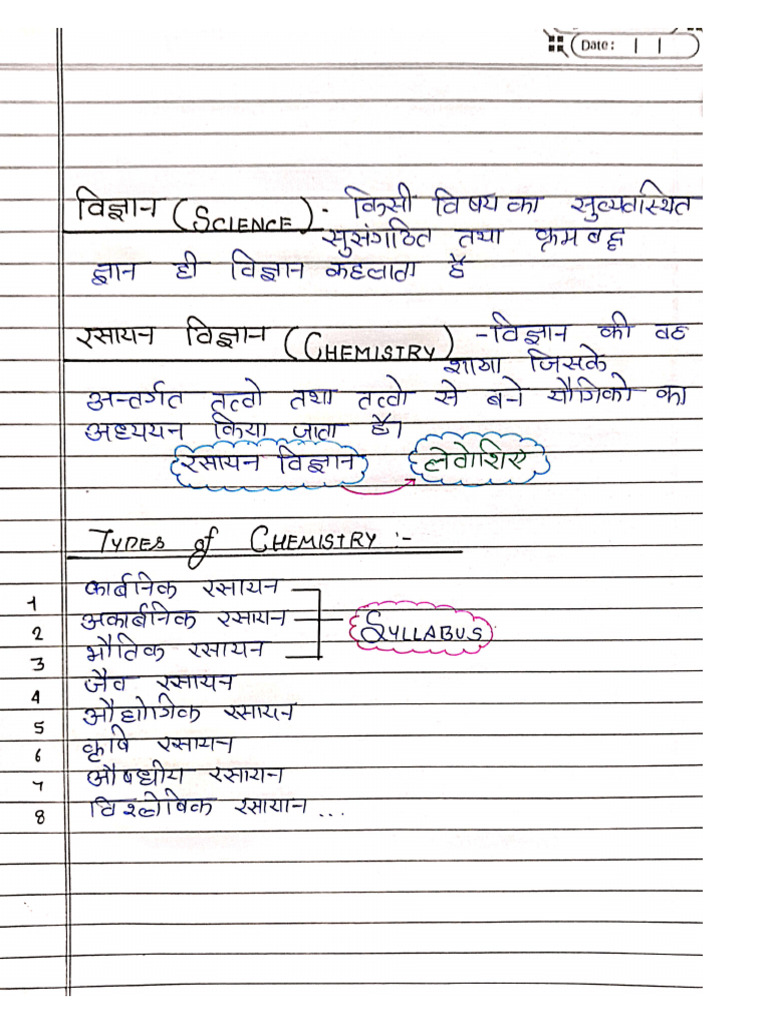 Date: | |
विज्ञान (SCIENCE) - किसी विषय का सुव्यवस्थित
सुसंगठित तथा क्रमबद्ध
ज्ञान ही विज्ञान कहलाता है
रसायन विज्ञान (CHEMISTRY) - विज्ञान की वह
शाखा जिसके
अन्तर्गत तत्वो तथा तत्वो से बने यौगिको का
अध्ययन किया जाता है।
रसायन विज्ञान → लेवोशिए
TYPES of CHEMISTRY :-
1 कार्बनिक रसायन
2 अकार्बनिक रसायन SYLLABUS
3 भौतिक रसायन
4 जैव रसायन
5 औद्योगिक रसायन
6 कृषि रसायन
7 औषधीय रसायन
8 विश्लेषिक रसायान ...